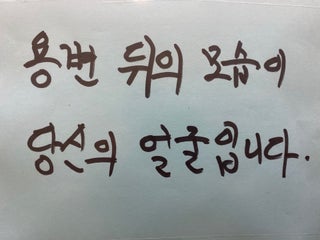 용변 뒤의 모습이
당신의 얼굴입니다.